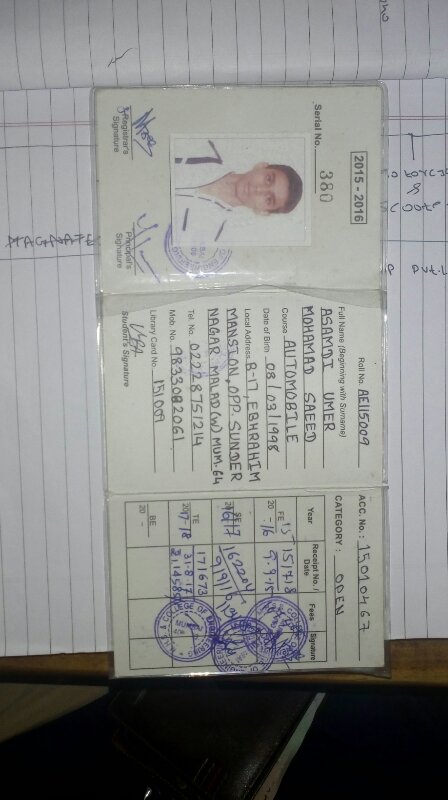 2015 - 2016
Serial No. 380
Registrar's
Signature
Principal's
Signature
Roll No. AE115009
Full Name (Beginning with Surname)
ASAMDI UMER
MOHAMAD SAEED
Course AUTOMOBILE
Date of Birth 08/03/1998
Local Address B-17, EBHRAHIM
MANSION, OPP. SUNDER
NAGAR, MALAD(W) MUM. 64
Tel. No. 02228751214
Mob. No. 9833082061
Library Card No. 151009
Student's Signature
ACC. No.: 15010467
CATEGORY: OPEN
Year Receipt No. / Date Fees Signature
FE 15 151718
20 -16 9.9.15
SE 162204
20
TE 171673
2017-18 31.8.17
BE
20 -
MAGNATE